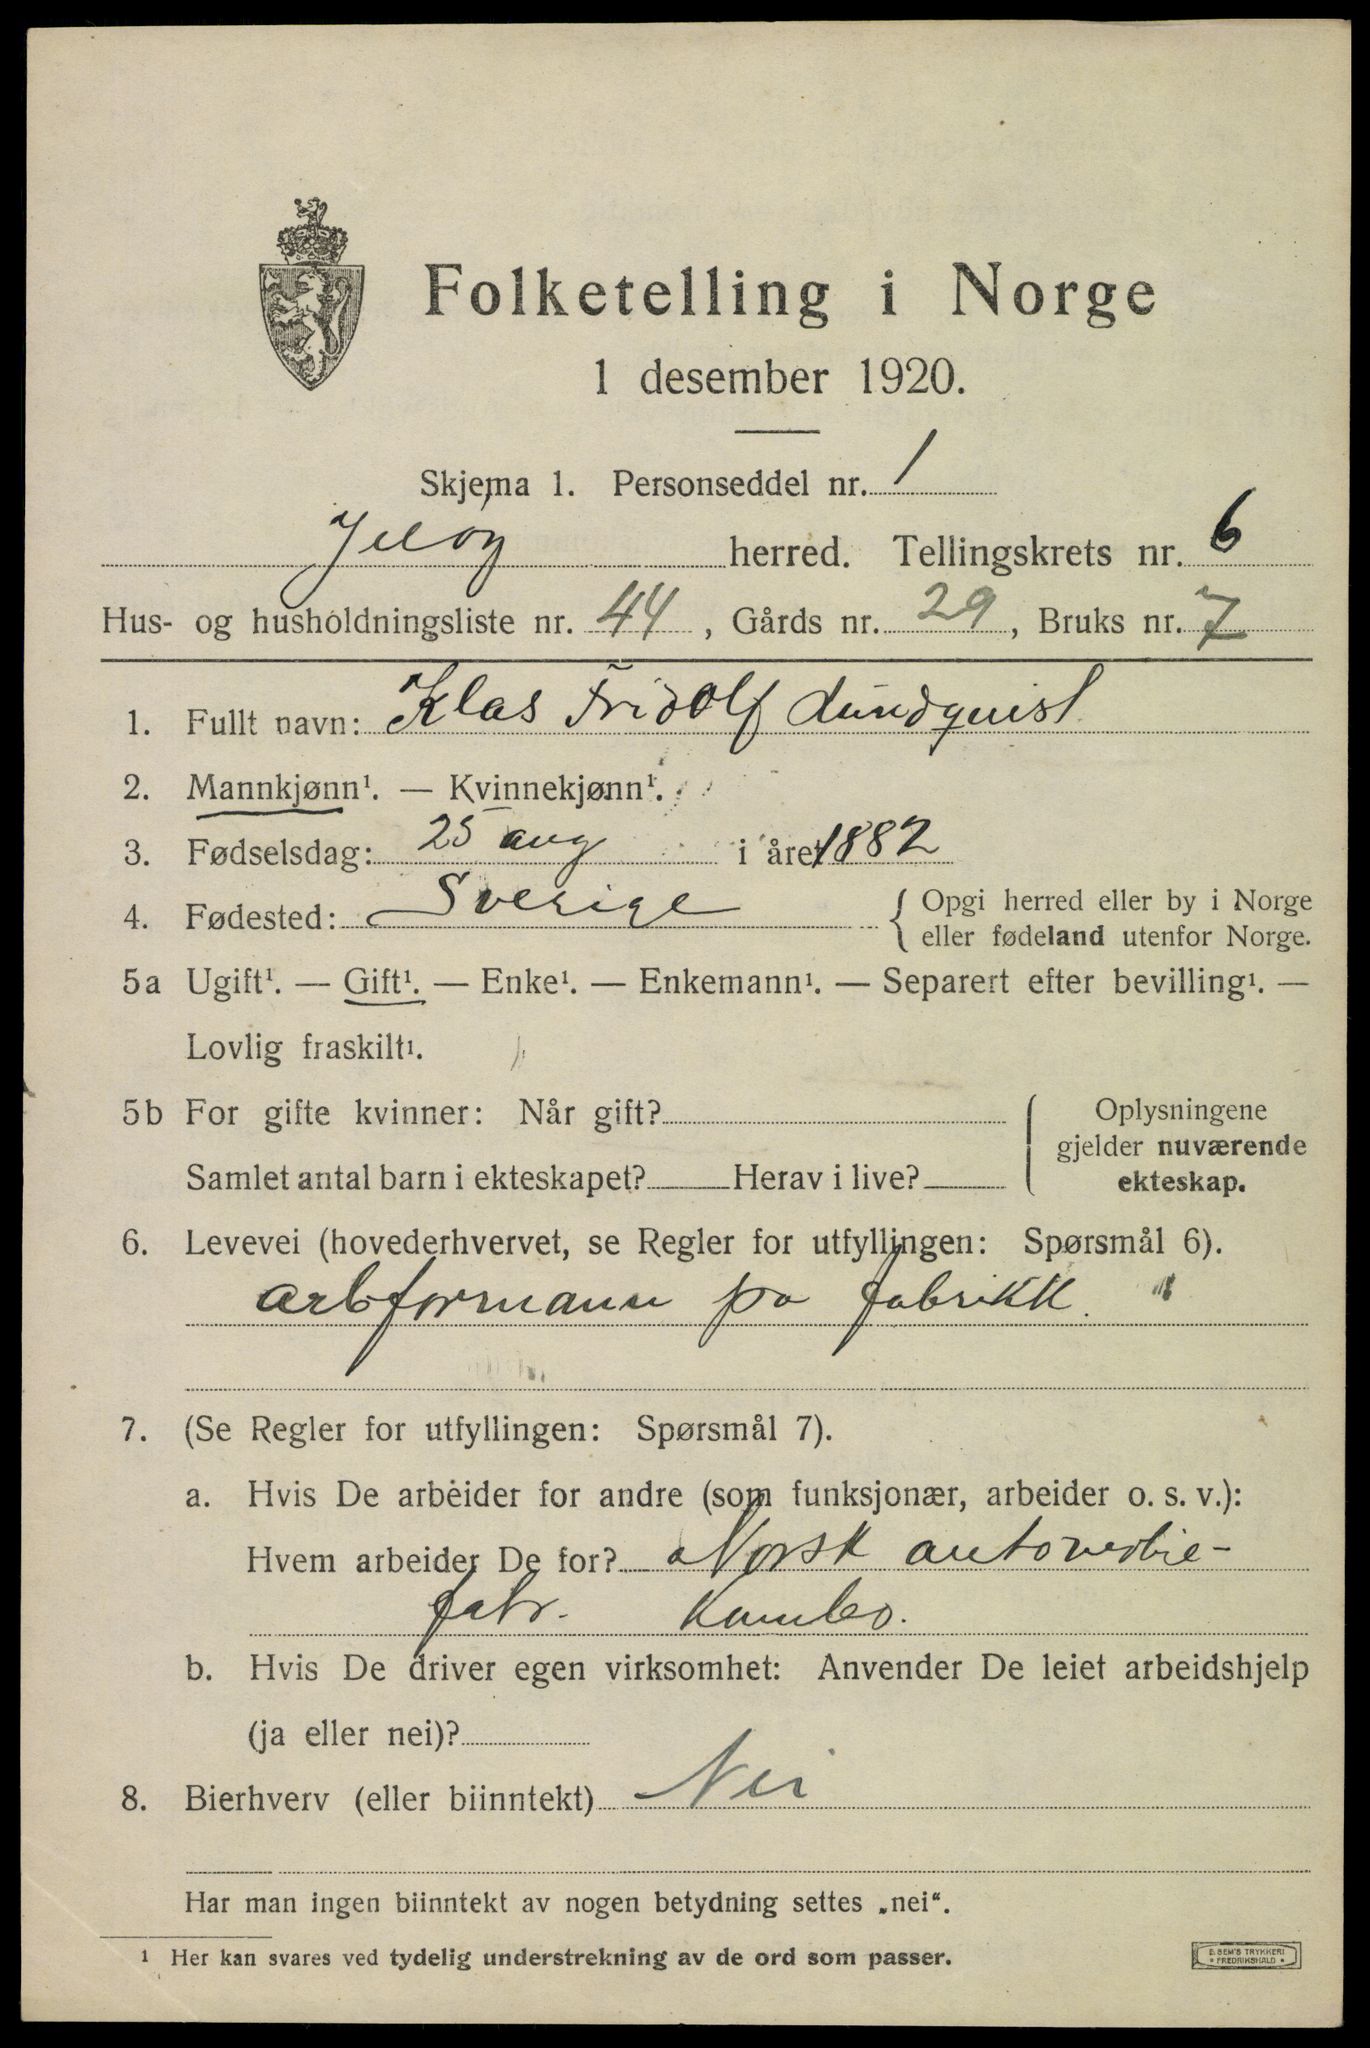 Folketelling i Norge
1 desember 1920.
Skjema 1. Personseddel nr. 1
Jeløy herred. Tellingskrets nr. 6
Hus- og husholdningsliste nr. 44, Gårds nr. 29, Bruks nr. 7
1. Fullt navn: Klas Fridolf Lundquist
2. Mannkjønn¹. — Kvinnekjønn¹.
3. Fødselsdag: 25 aug i året 1882
4. Fødested: Sverige { Opgi herred eller by i Norge
eller fødeland utenfor Norge.
5a Ugift¹. — Gift¹. — Enke¹. — Enkemann¹. — Separert efter bevilling¹. —
Lovlig fraskilt¹.
5b For gifte kvinner: Når gift?
Samlet antal barn i ekteskapet? Herav i live?
{ Oplysningene
gjelder nuværende
ekteskap.
6. Levevei (hovederhvervet, se Regler for utfyllingen: Spørsmål 6).
arbformann pa fabrikk.
7. (Se Regler for utfyllingen: Spørsmål 7).
a. Hvis De arbeider for andre (som funksjonær, arbeider o. s. v.):
Hvem arbeider De for? Norsk
fabr. Kambo.
b. Hvis De driver egen virksomhet: Anvender De leiet arbeidshjelp
(ja eller nei)?
8. Bierhverv (eller biinntekt) Nei
Har man ingen biinntekt av nogen betydning settes „nei“.
¹ Her kan svares ved tydelig understrekning av de ord som passer.
E. SEM'S TRYKKERI
* FREDRIKSHALD *